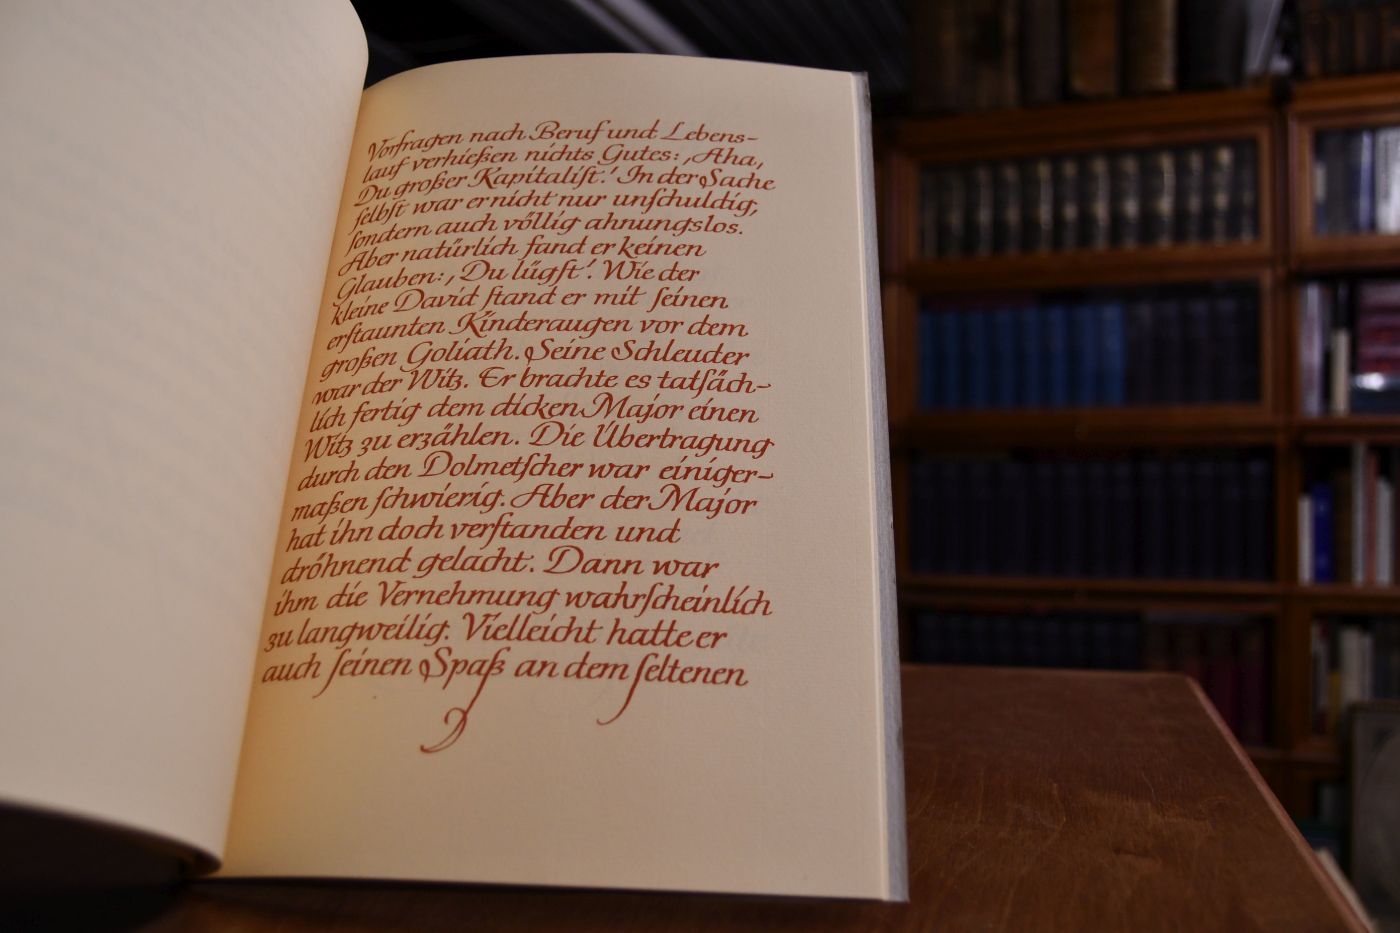 Vorfragen nach Beruf und Lebens-
lauf verhießen nichts Gutes: ‚Aha,
Du großer Kapitaliſt.‘ In der Sache
ſelbſt war er nicht nur unſchuldig,
ſondern auch völlig ahnungslos.
Aber natürlich fand er keinen
Glauben: ‚Du lügſt‘. Wie der
kleine David ſtand er mit ſeinen
erſtaunten Kinderaugen vor dem
großen Goliath. Seine Schleuder
war der Witz. Er brachte es tatſäch-
lich fertig dem dicken Major einen
Witz zu erzählen. Die Übertragung
durch den Dolmetſcher war einiger-
maßen ſchwierig. Aber der Major
hat ihn doch verſtanden und
dröhnend gelacht. Dann war
ihm die Vernehmung wahrſcheinlich
zu langweilig. Vielleicht hatte er
auch ſeinen Spaß an dem ſeltenen